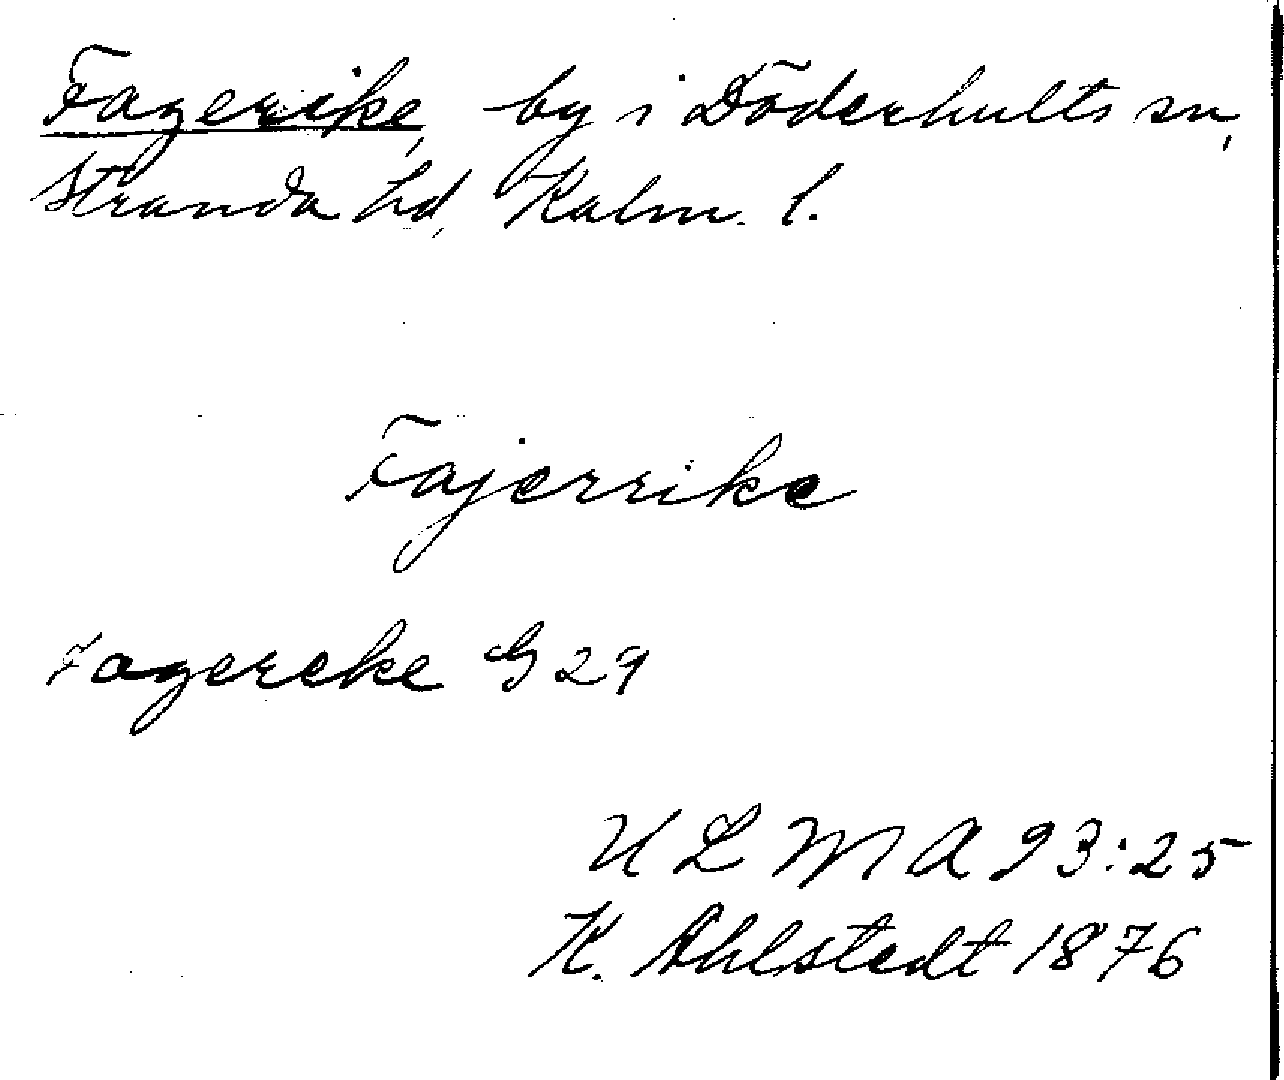 Fagerike, by i Döderhults sn,
Stranda hd, Kalm. l.
Fajerrike
Fagereke G 29
ULMA 93:25
K. Ahlstedt 1876